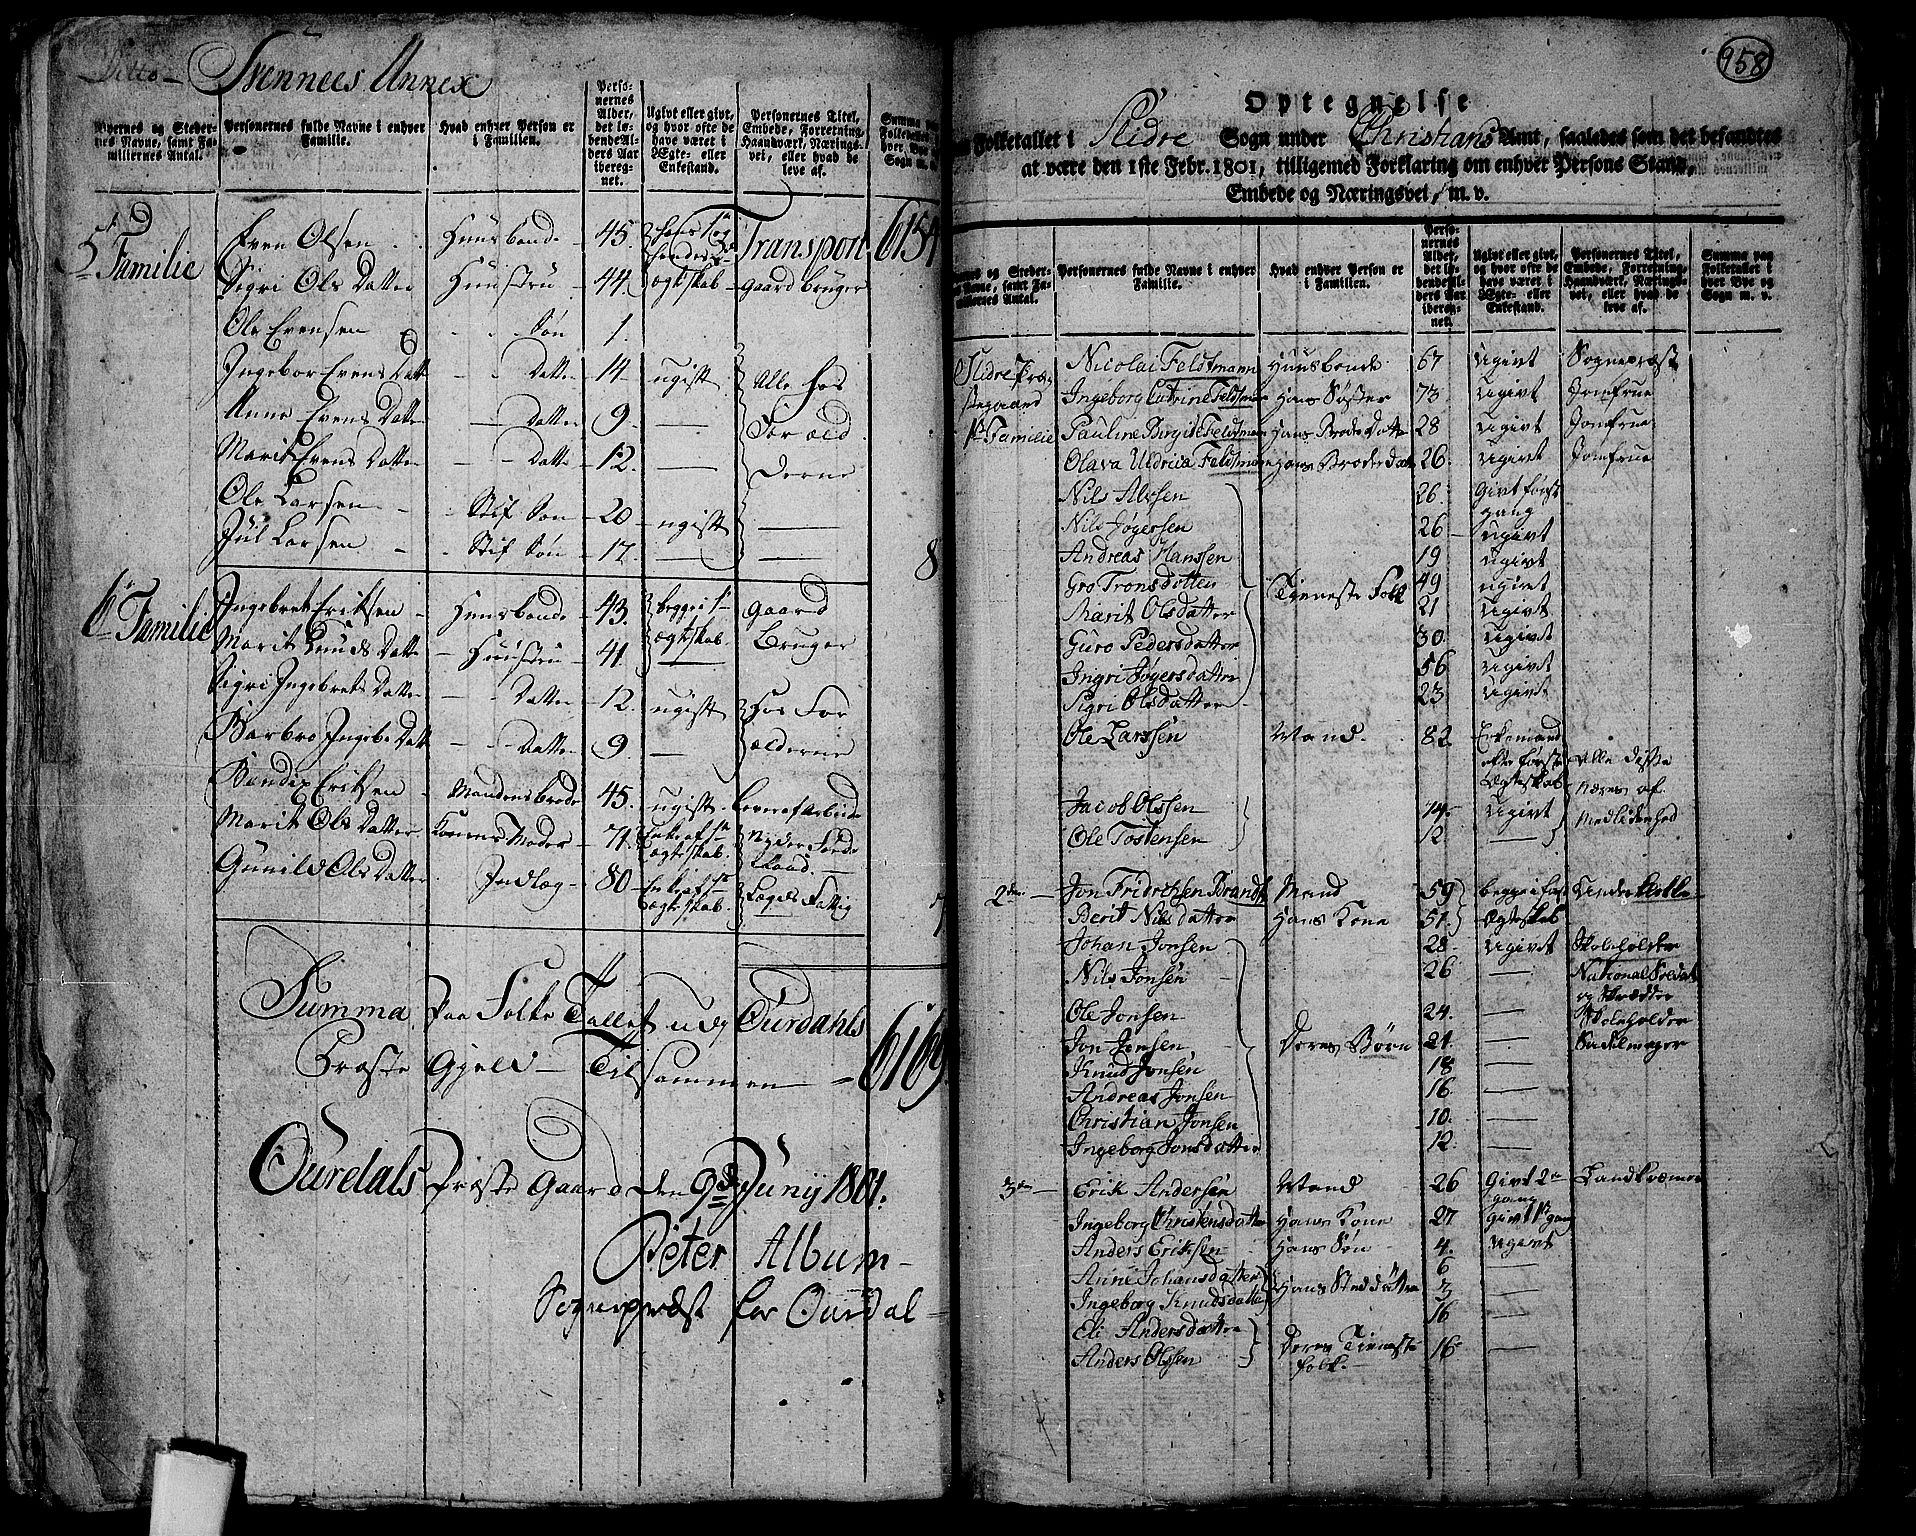 Ditto – Svennees Annex
Byernes og Steder-
nes Navne, samt Fa-
miliernes Antal.
Personernes fulde Navne i enhver
Familie.
Hvad enhver Person er
i Familien.
Perso-
nernes
Alder,
det lø-
bende Al-
ders Aar
iberegnet.
Ugivt eller givt,
og hvor ofte de
have været i
Ægte- eller
Enkestand.
Personernes Titel,
Embede, Forretning,
Haandværk, Nærings-
vei, eller hvad de
leve af.
Transport 6154
5te Familie
Even Olsen Huusbonde 45. hans 1te og hendes 2de Ægteskab Gaardbruger
Sigri Ols Datter Huustru 44.
Ole Evensen Søn 1.
Ingebor Evens Datt Datter 14 ugift Alle hos
Anne Evens Datter Datter 9. — Foræld
Marit Evens Datter Datter 12. — derne
Ole Larsen Stif Søn 20 ugift —
Jul Larsen Stif Søn 17. — — 8
6te Familie
Ingebret Eriksen Huusbonde 43. begge i 1te Ægteskab. Gaard
Marit Knuds Datter Huustru 41. Bruger
Sigri Ingebrets Datter Datter 12. ugift Hos For
Barbro Ingebr Datt Datter 9. — ælderne
Bendix Eriksen Mandens Broder 45. ugift
Marit Ols Datter Konens Moder 71. Enke af 1te Ægteskab.
Gunild Ols Datter Indlæg 80 Enke af 1te Ægteskab. Lægds Fattig
Summa paa Folke Tallet udj Ourdahls
Præste Gjeld – Tilsammen – 6169
Ourdals Præste Gaard den 9de Junij 1801.
Peter Album –
Sogneprest for Ourdal –
958
Optegnelse
Folketallet i Slidre Sogn under Christians Amt, saaledes som det befandtes
at være den 1ste Febr. 1801, tilligemed Forklaring om enhver Persons Stand,
Embede og Næringsvei, m. v.
Personernes fulde Navne i enhver
Familie.
Hvad enhver Person er
i Familien.
Perso-
nernes
Alder,
det lø-
bende Al-
ders Aar
iberegnet.
Ugivt eller givt,
og hvor ofte de
have været i
Ægte- eller
Enkestand.
Personernes Titel,
Embede, Forretning,
Haandværk, Nærings-
vei, eller hvad de
leve af.
Summa paa
Folketallet i
hver Bye og
Sogn m. v.
Slidre Præ-
stegaard
1te Familie
Nicolai Feldtmann Huusbonde 67 Ugivt Sognepræst
Ingeborg Catrine Feldtmann Hans Søster 73 Ugivt Jomfrue
Pauline Birgite Feldtmann Hans Broder Datter 28 Ugivt Jomfrue
Olava Uldrica Feldtmann Hans Broder Datter 26 Ugivt Jomfrue
Nils Alvsen 26 Givt først gang
Nils Jøgersen 26 Ugivt
Andreas Hanssen 19 Ugivt
Gro Tronsdotter Tieneste Folk 49 Ugivt
Marit Olsdatter 21 Ugivt
Guro Pedersdatter 30. Ugivt
Ingri Jøgersdatter 56 Ugivt
Sigri Olsdatter 23 Ugivt
Ole Larssen Mand 82 Enkemand efter første Ægteskab
Alle disse
Næres af
Medlidenhed
Jacob Olssen 74 Ugivt
Ole Tostensen 12
2den –
Jon Fridrichsen Brandt Mand 59 begge i første Ægteskab Underklokker
Berit Nilsdatter Hans Kone 51
Johan Jonsen 28 Ugivt Skoleholder
Nils Jonsen 26 — National Soldat og Skrædder
Ole Jonsen 24. — Skoleholder
Jon Jonsen Deres Børn 21 — Sadelmager
Knud Jonsen 18 —
Andreas Jonsen 16 —
Christian Jonsen 10. —
Ingeborg Jonsdatter 12 —
3die –
Erik Andersen Mand 26 Givt 2den gang Landkræmer
Ingeborg Christensdatter Hans Kone 27 Givt 1te gang
Anders Eriksen Hans Søn 4. Ugivt
Anne Johansdatter Hans Steddøttre 6 —
Ingeborg Knudsdatter 3 —
Eli Andersdatter Deres Tieneste folk 16
Anders Olssen 16 —